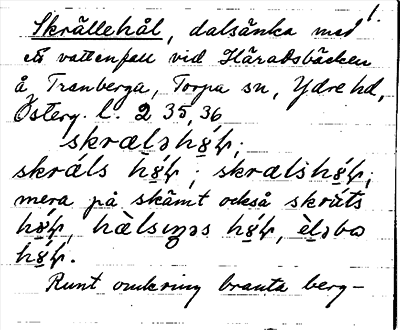 1.
Skrällehål, dalsänka med
ett vattenfall vid Häradsbäcken
å Tranberga, Torpa sn, Ydre hd,
Österg. l. 2 35, 36
skræləhɤ́ɫ;
skráls hɤ́ɫ; skrælshɤ́ɫ;
mera på skämt också skráts
hɤ́ɫ, hɤ́ɫ,
hɤ́ɫ.
Runt omkring branta berg-